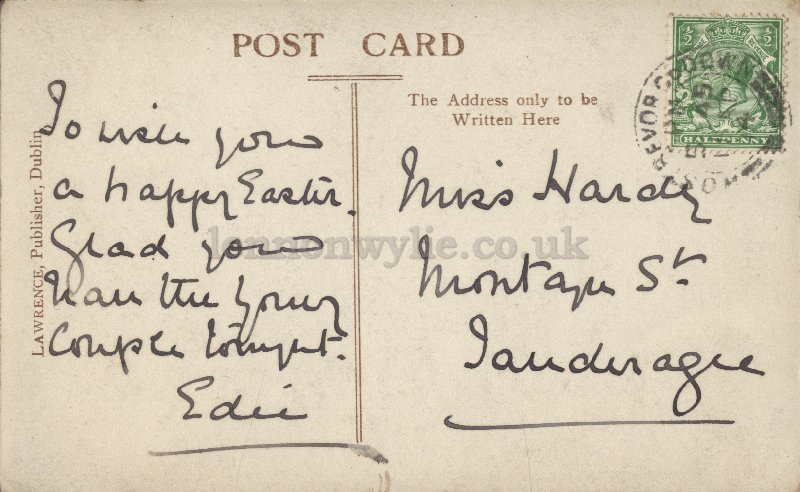 POST CARD
The Address only to be
Written Here
½ ½
HALFPENNY
LAWRENCE, Publisher, Dublin
To wish you
a happy Easter.
Glad you
have the young
couple tonight.
Edie
Miss Hardy
Montague St
Tanderagee
lennonwylie.co.uk